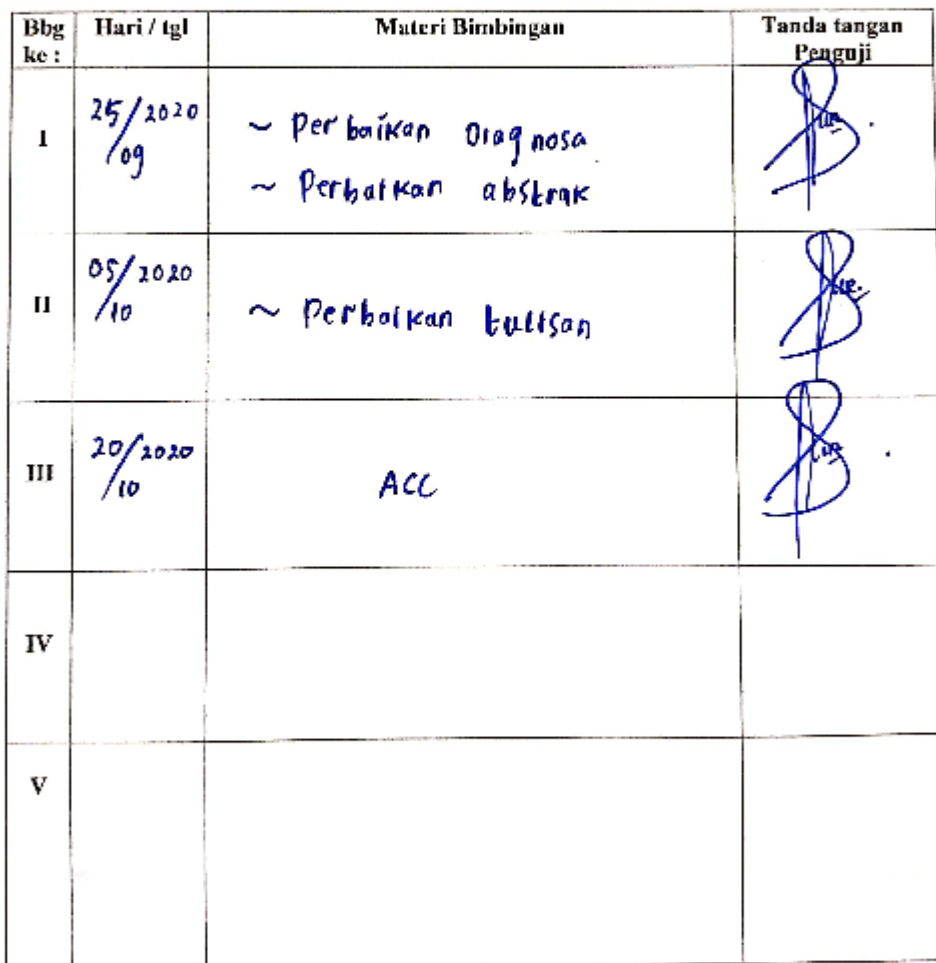 Bbg ke : Hari / tgl Materi Bimbingan Tanda tangan Penguji
I 25/09 2020 ~ Perbaikan Diagnosa
~ Perbaikan abstrak
II 05/10 2020 ~ Perbaikan tulisan
III 20/10 2020 ACC
IV
V